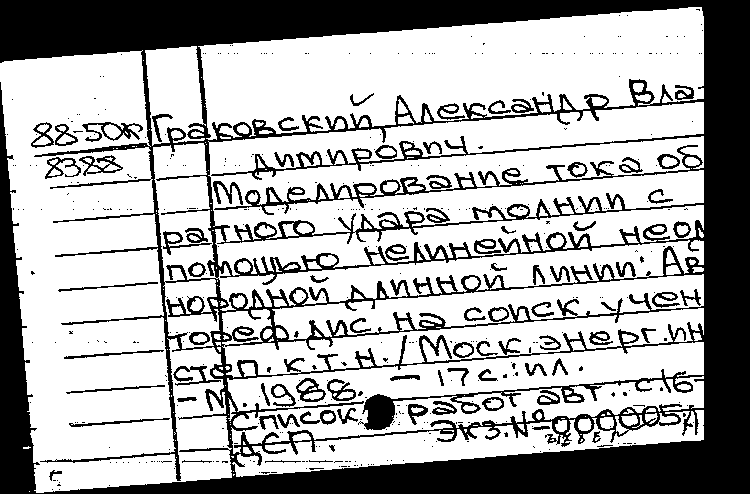 88-50к Граковский, Александр Вла-
8388
димирович.
Моделирование тока об
ратного удара молнии с
помощью нелинейной неод
нородной длинной линии: Ав
тореф. дис. на соиск. учен
степ. к.т.н. / Моск. энерг. ин
- М., 1988. - 17 с.: ил.
Список работ авт.: с. 16-
ДСП. Экз. № 000005